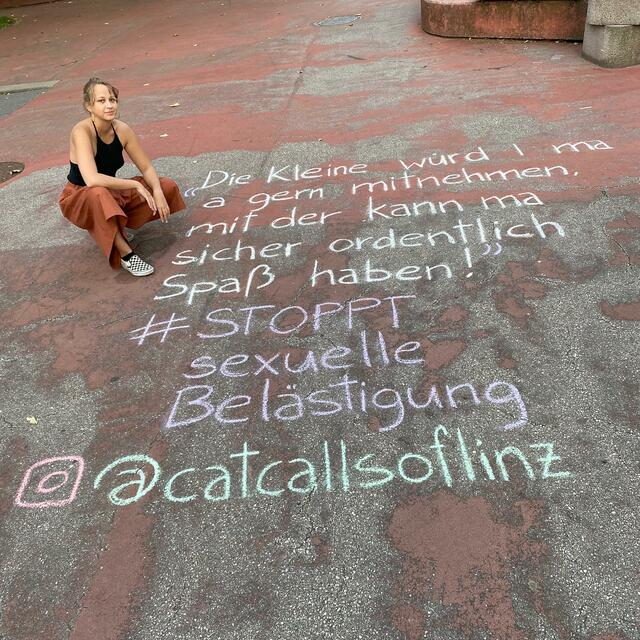 „Die Kleine würd I ma
a gern mitnehmen,
mit der kann ma
sicher ordentlich
Spaß haben!"
#STOPPT
sexuelle
Belästigung
@catcallsoflinz